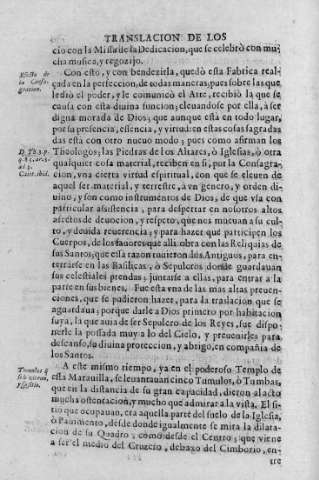 TRANSLACION DE LOS
cio con la Missa de la Dedicacion, que se celebrò con mu-
cha musica, y regozijo.
Efecto de
la Consa-
gracion.
Con esto, y con bendezirla, quedò esta Fabrica real-
çada en la perfeccion, de todas maneras, pues sobre las que
le diò el poder, y le comunicò el Arte, recibiò la que se
causa con esta diuina funcion; eleuandose por ella, à ser
digna morada de Dios; que aunque està en todo lugar,
por su presencia, essencia, y virtud: en estas cosas sagradas
das està con otro nueuo modo; pues como afirman los
D. Th. 3. p.
q. 83. ar. 3.
ad 3.
Caiet. ibid.
Theologos, las Piedras de los Altares, ò Iglesias, ò otra
qualquier cosa material, reciben en si, por la Consagra-
cion, vna cierta virtud espiritual, con que se eleuen de
aquel ser material, y terrestre, à vn genero, y orden di-
uino, y son como instrumentos de Dios, de que vsa con
particular assistencia, para despertar en nosotros altos
afectos de deuocion, y respeto, que nos mueuan a su cul-
to, y deuida reuerencia; y para hazer que participen los
Cuerpos, de los fauores que alli obra con las Reliquias de
sus Santos; que esta razon tuuieron los Antiguos, para en-
terrarse en las Basilicas, ò Sepulcros donde guardauan
sus celestiales prendas; juntarse a ellas, para entrar a la
parte en sus bienes. Fue esta vna de las mas altas preuen-
ciones, que se pudieron hazer, para la traslacion que se
aguardaua; porque darle a Dios primero por habitacion
suya, la que auia de ser Sepulcro de los Reyes, fue dispo-
nerle la possada muy a lo del Cielo, y preuenirles para
descanso, su diuina proteccion, y abrigo, en compañia de
los Santos.
Tumulos q
se leuantan,
y su sitio.
A este mismo tiempo, ya en el poderoso Templo de
esta Marauilla, se leuantauan cinco Tumulos, ò Tumbas,
que en la distancia de su gran capacidad, dieron al acto
mucha ostentacion, y mucho que admirar a la vista. El si-
tio que ocupauan, era aquella parte del suelo de la Iglesia,
ò Pauimento, desde donde igualmente se mira la dilata-
cion de su Quadro; como desde el Centro; que viene
a ser el medio del Cruzero, debaxo del Cimborio, en-
tre